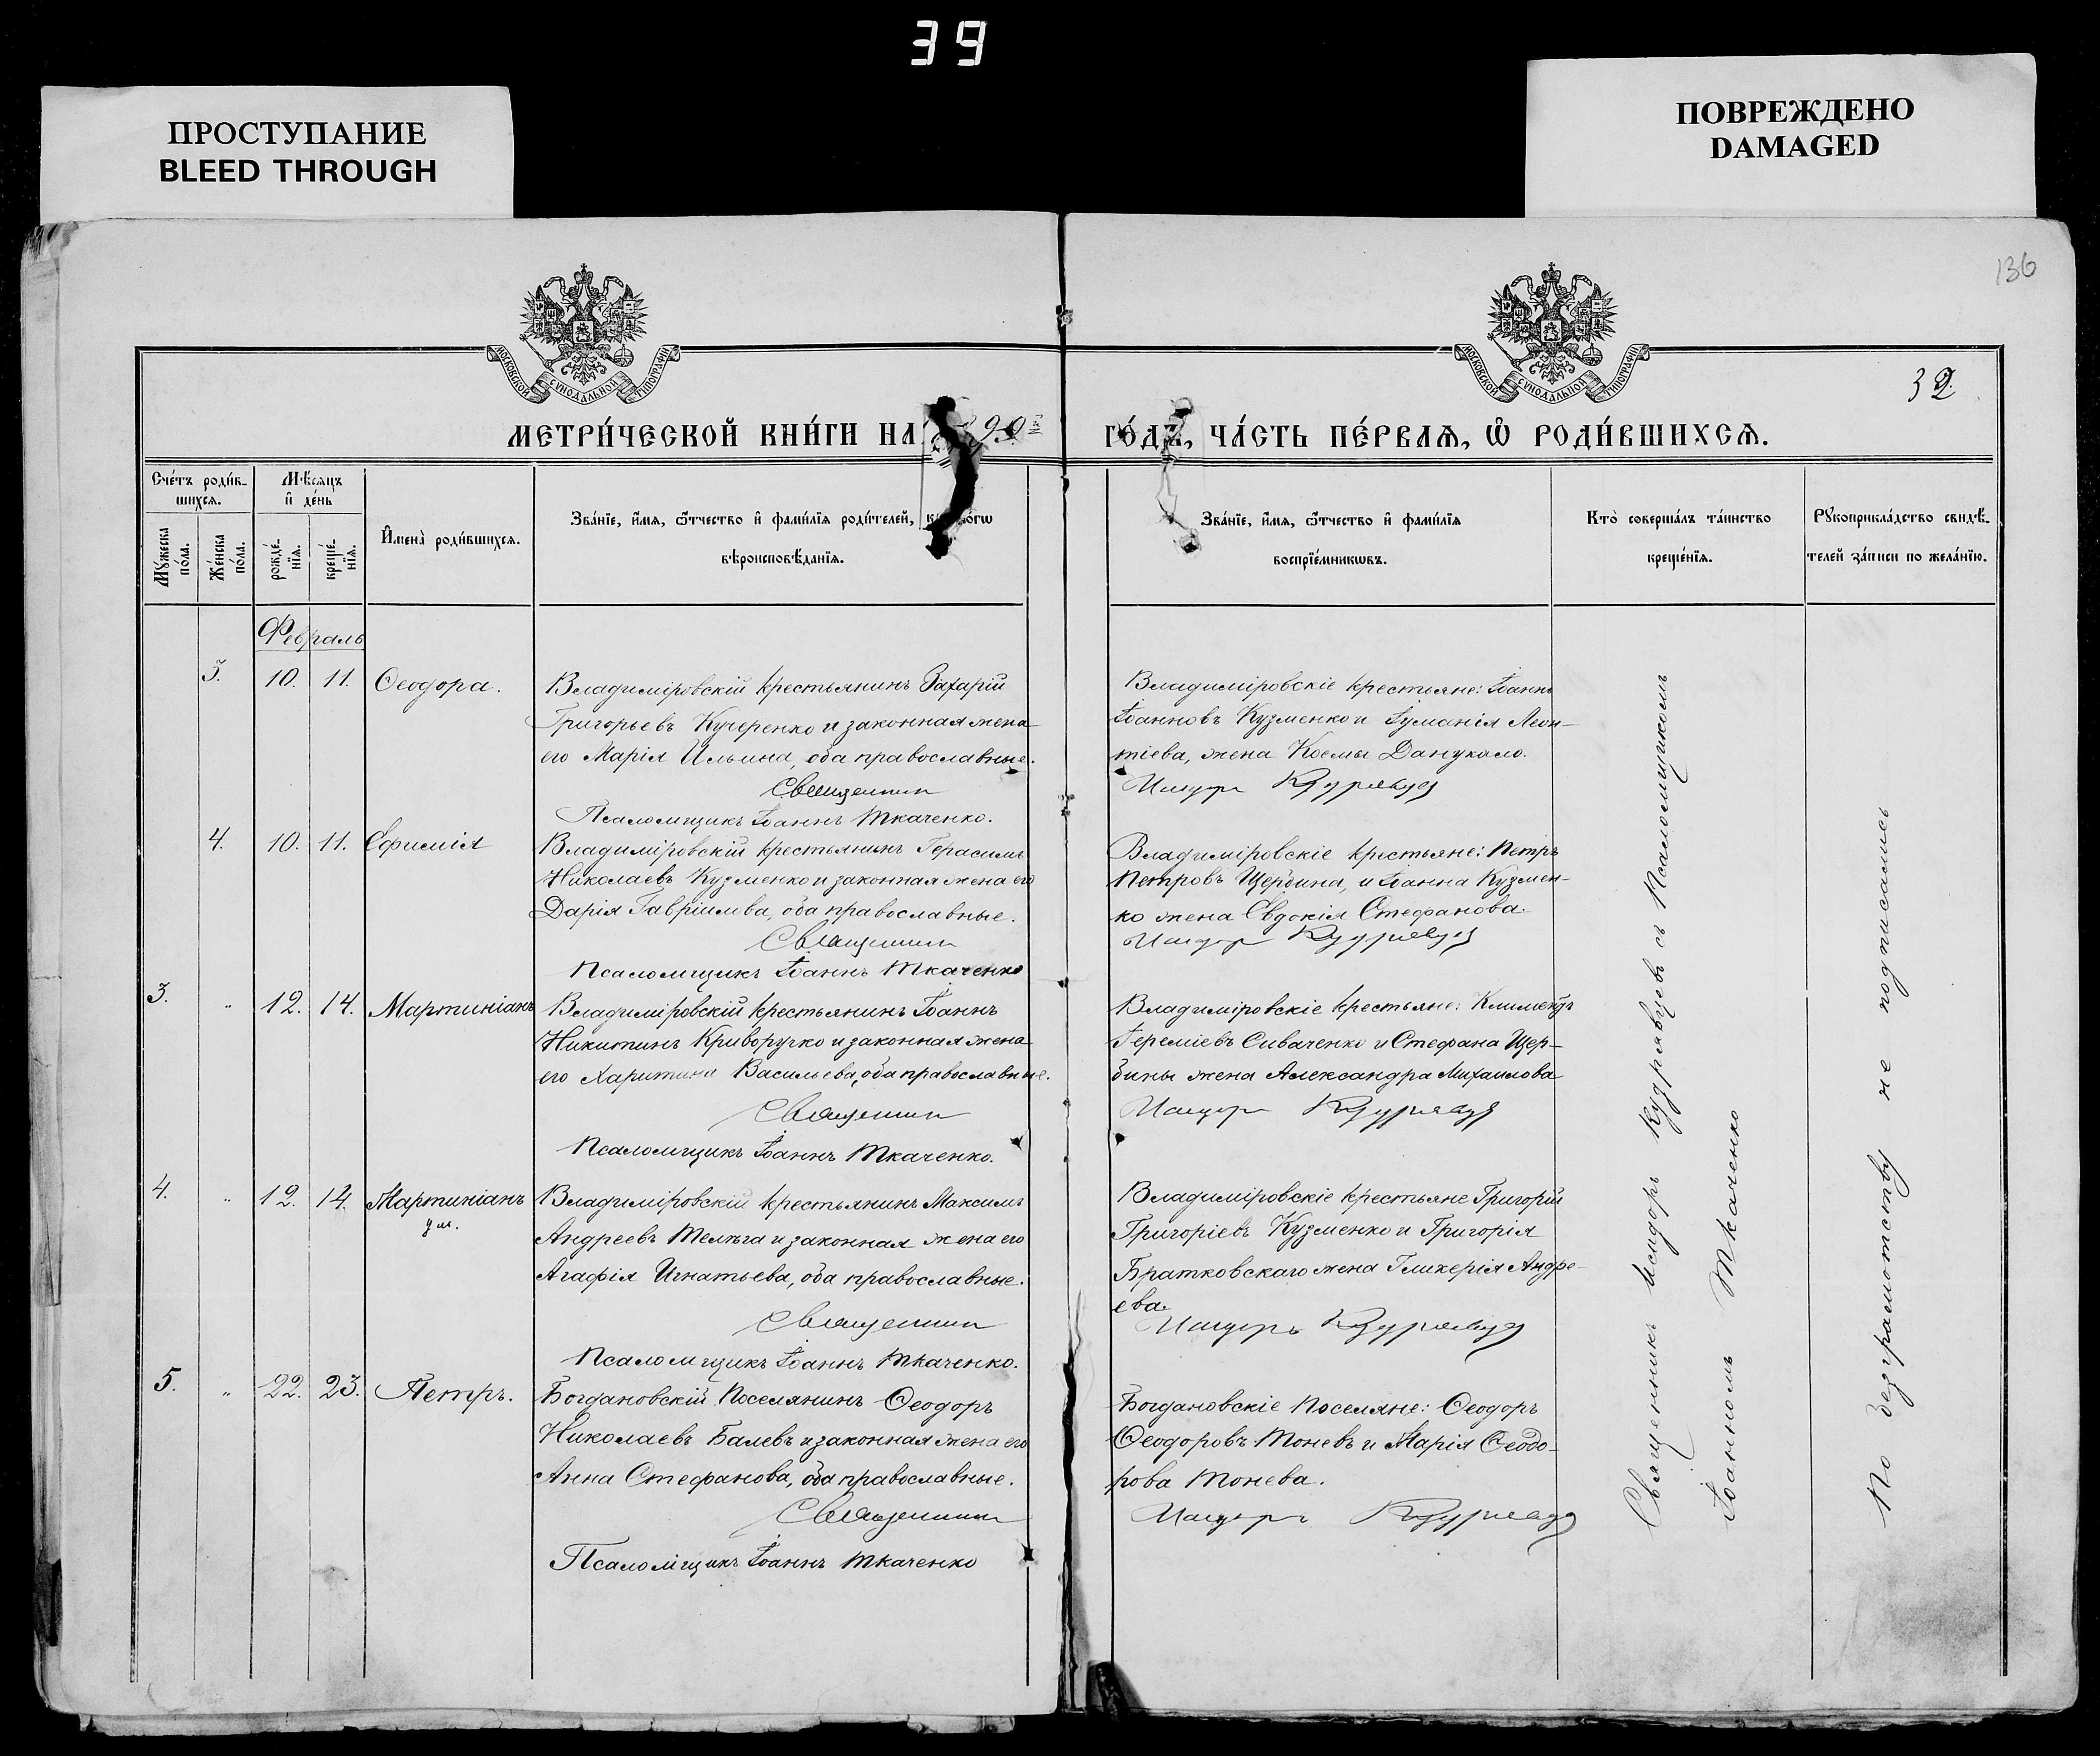 39
ПРОСТУПАНИЕ
BLEED THROUGH
ПОВРЕЖДЕНО
DAMAGED
136
МОСКОВСКОЙ СѴНОДАЛЬНОЙ ТИПОГРАФІИ
МОСКОВСКОЙ СѴНОДАЛЬНОЙ ТИПОГРАФІИ
32.
МЕТРИ́ЧЕСКОЙ КНИ́ГИ НА 99
ГО́ДЪ, ЧА́СТЬ ПЕ́РВАѦ, Ѽ РОДИ́ВШИХСѦ.
Сче́тъ роди́в-
шихсѧ.
Мꙋ́жеска по́ла.
Же́нска по́ла.
Мѣ́сяцъ
и҆ де́нь
рожде́-
нїѧ.
креще́-
нїѧ.
И҆мена̀ роди́вшихсѧ.
Зва́нїе, и҆́мѧ, ѻ҆́тчество и҆ фами́лїѧ роди́телей,
вѣроисповѣ́данїѧ.
Зва́нїе, и҆́мѧ, ѻ҆́тчество и҆ фами́лїѧ
воспрїе́мникѡвъ.
Кто̀ соверша́лъ та́инство
креще́нїѧ.
Рꙋкоприкла́дство свидѣ́-
телей за́писи по жела́нїю.
Февраль
3. 10. 11. Ѳеодора.
Владиміровскій крестьянинъ Захарій
Григорьевъ Кучеренко и законная жена
его Марія Ильина, оба православные.
Священник
Псаломщикъ Іоаннъ Ткаченко.
Владиміровскіе крестьяне: Іоаннъ
Іоанновъ Кузменко и Іуліанія Леон-
тіева, жена Космы Данукало.
Исидоръ Кудрявцев
4. 10. 11. Евфимія
Владиміровскій крестьянинъ Герасимъ
Николаевъ Кузменко и законная жена его
Дарія Гавріилова, оба православные.
Священник
Псаломщикъ Іоаннъ Ткаченко
Владиміровскіе крестьяне: Петръ
Петровъ Щербина, и Іоанна Кузмен-
ко жена Евдокія Стефанова.
Исидор Кудрявцев
3. " 12. 14. Мартиніанъ
Владиміровскій крестьянинъ Іоаннъ
Никитинъ Криворучко и законная жена
его Харитина Васильева, оба православные.
Священник
Псаломщикъ Іоаннъ Ткаченко.
Владиміровскіе крестьяне: Климентъ
Іереміевъ Сиваченко и Стефана Щер-
бины жена Александра Михаилова
Исидор Кудрявцев
4. " 12. 14. Мартиніанъ
ум.
Владиміровскій крестьянинъ Максимъ
Андреевъ Телѣга и законная жена его
Агафія Игнатьева, оба православные.
Священник
Псаломщикъ Іоаннъ Ткаченко.
Владиміровскіе крестьяне Григорій
Григоріевъ Кузменко и Григорія
Братковскаго жена Гликерія Андре-
ева.
Исидоръ Кудрявцев
5. " 22. 23. Петръ.
Богдановскій Поселянинъ Ѳеодоръ
Николаевъ Балевъ и законная жена его
Анна Стефанова, оба православные.
Священник
Псаломщикъ Іоаннъ Ткаченко
Богдановскіе Поселяне: Ѳеодоръ
Ѳеодоровъ Тоневъ и Марія Ѳеодо-
рова Тонева.
Исидоръ Кудрявцев
Священникъ Исидоръ Кудрявцевъ съ Псаломщикомъ
Іоанномъ Ткаченко
По безграмотству не подписались